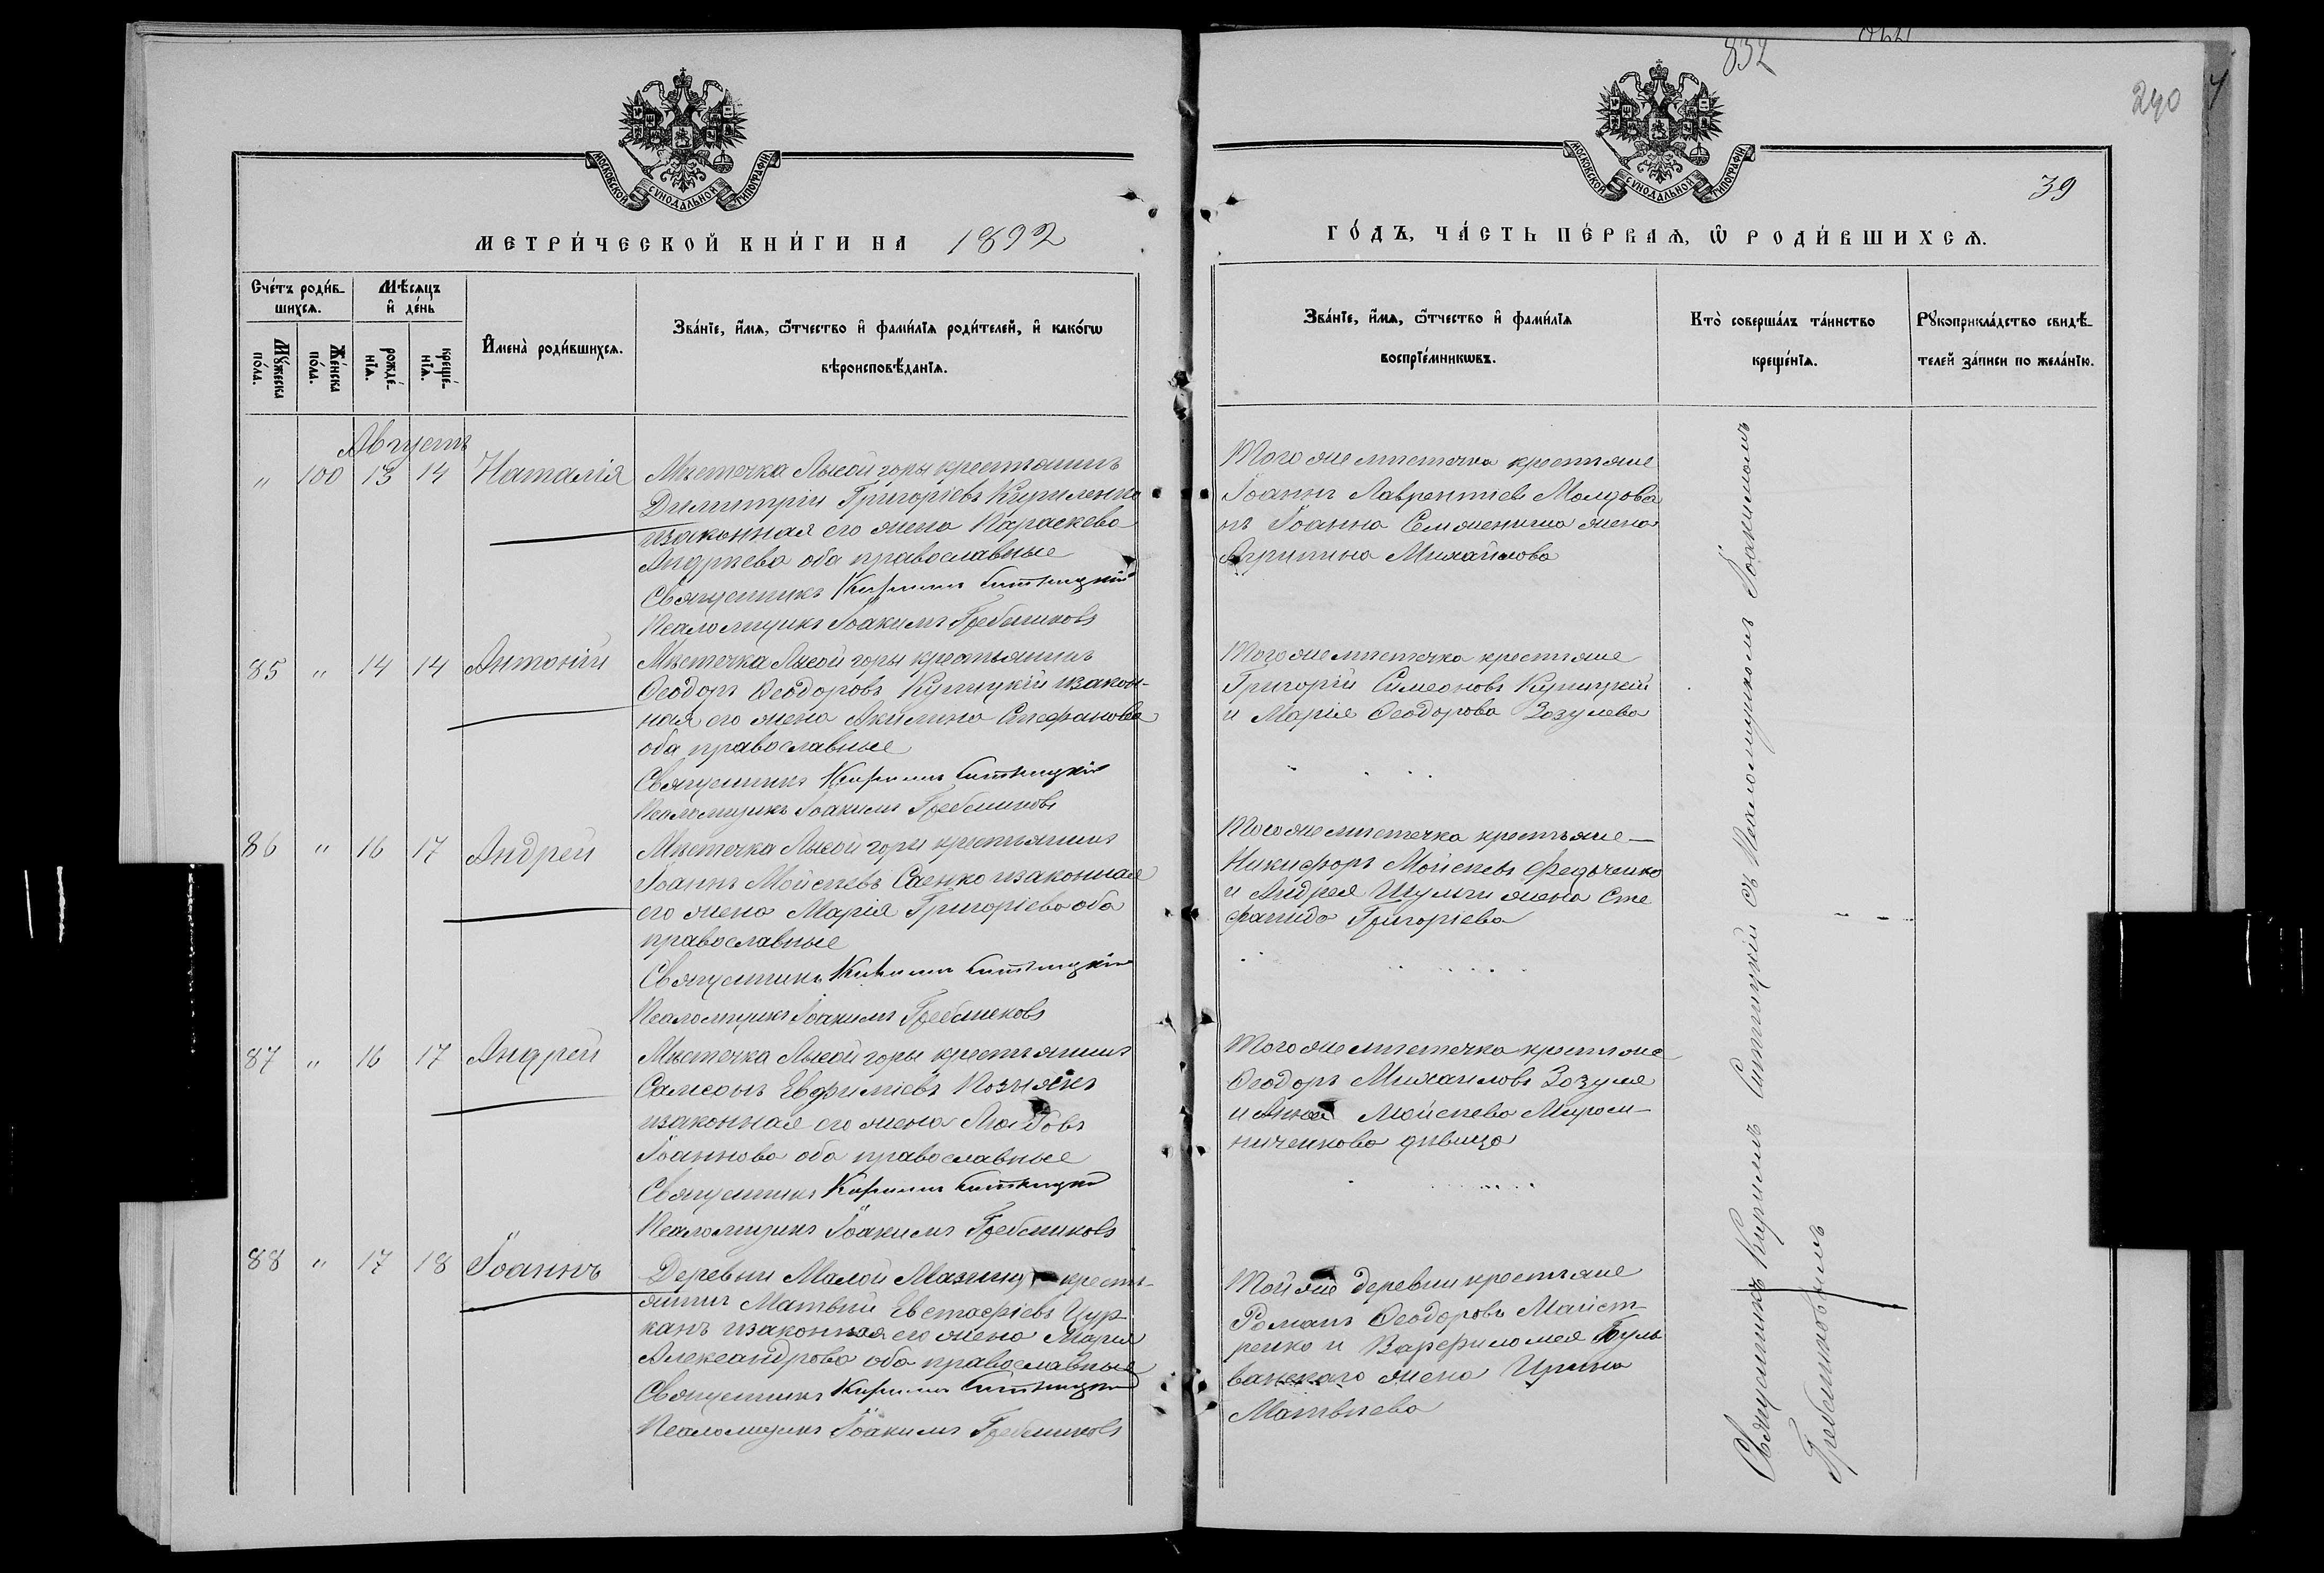 832
240
39
МОСКОВСКОЙ СѴНОДАЛЬНОЙ ТИПОГРАФІИ
МОСКОВСКОЙ СѴНОДАЛЬНОЙ ТИПОГРАФІИ
МЕТРИ́ЧЕСКОЙ КНИ́ГИ НА 1892
ГО́ДЪ, ЧА́СТЬ ПЕ́РВАѦ, Ѿ РОДИ́ВШИХСѦ.
Счéтъ роди́в-
шихсѧ.
Мꙋ́жеска
по́ла.
Же́нска
по́ла.
Мѣ́сѧцъ
и҆ де́нь
рожде́-
нїѧ.
креще́-
нїѧ.
И҆мена̀ роди́вшихсѧ.
Зва́нїе, и҆́мѧ, ѻ҆́тчество и҆ фами́лїѧ роди́телей, и҆ како́гѡ
вѣроисповѣ́данїѧ.
Зва́нїе, и҆́мѧ, ѻ҆́тчество и҆ фами́лїѧ
воспрїе́мникѡвъ.
Кто̀ соверша́лъ та́инство
креще́нїѧ.
Рꙋкоприкла́дство свидѣ́-
телей за́писи по жела́нїю.
Августъ
" 100 13 14 Наталія
Мѣстечка Лысой горы крестьянинъ
Димитрій Григоріевъ Куриленко
и законная его жена Параскева
Андреева оба православные
Священникъ Кириллъ Ситницкій
Псаломщикъ Іоакимъ Гребенниковъ
Того же мѣстечка крестьяне
Іоаннъ Лаврентіевъ Молдова
нъ Іоанна жена
Агрипина Михайлова
85 " 14 14 Антоній
Мѣстечка Лысой горы крестьянинъ
Ѳеодоръ Ѳеодоровъ Купицкій и закон-
ная его жена Акилина Стефанова
оба православные
Священникъ Кириллъ Ситницкій
Псаломщикъ Іоакимъ Гребенниковъ
Того же мѣстечка крестьяне
Григорій Симеоновъ Купицкій
и Марія Ѳеодорова Зозулева
86 " 16 17 Андрей
Мѣстечка Лысой горы крестьянинъ
Іоаннъ Мойсеевъ Саенко и законная
его жена Марія Григоріева оба
православные
Священникъ Кириллъ Ситницкій
Псаломщикъ Іоакимъ Гребенниковъ
Того же мѣстечка крестьяне
Никифоръ Мойсеевъ Федченко
и Андрея Шульги жена Сте
фанида Григоріева
87 " 16 17 Андрей
Мѣстечка Лысой горы крестьянинъ
Самсонъ Евфиміевъ Познякъ
и законная его жена Любовь
Іоаннова оба православные
Священникъ Кириллъ Ситницкій
Псаломщикъ Іоакимъ Гребенниковъ
Того же мѣстечка крестьяне
Ѳеодоръ Михаиловъ Зозуля
и Анна Мойсеева Мирош-
ниченкова дѣвица
88 " 17 18 Іоаннъ
Деревни Малой кресть-
янинъ Матвѣй Евстафіевъ Цур
канъ и законная его жена Марія
Александрова оба православные
Священникъ Кириллъ Ситницкій
Псаломщикъ Іоакимъ Гребенниковъ
Той же деревни крестьяне
Романъ Ѳеодоровъ Майст-
ренко и Варфиломея Буль
ванскаго жена Ирина
Матвѣева
Священникъ Кириллъ Ситницкій съ Псаломщикомъ Іоакимомъ
Гребенниковымъ